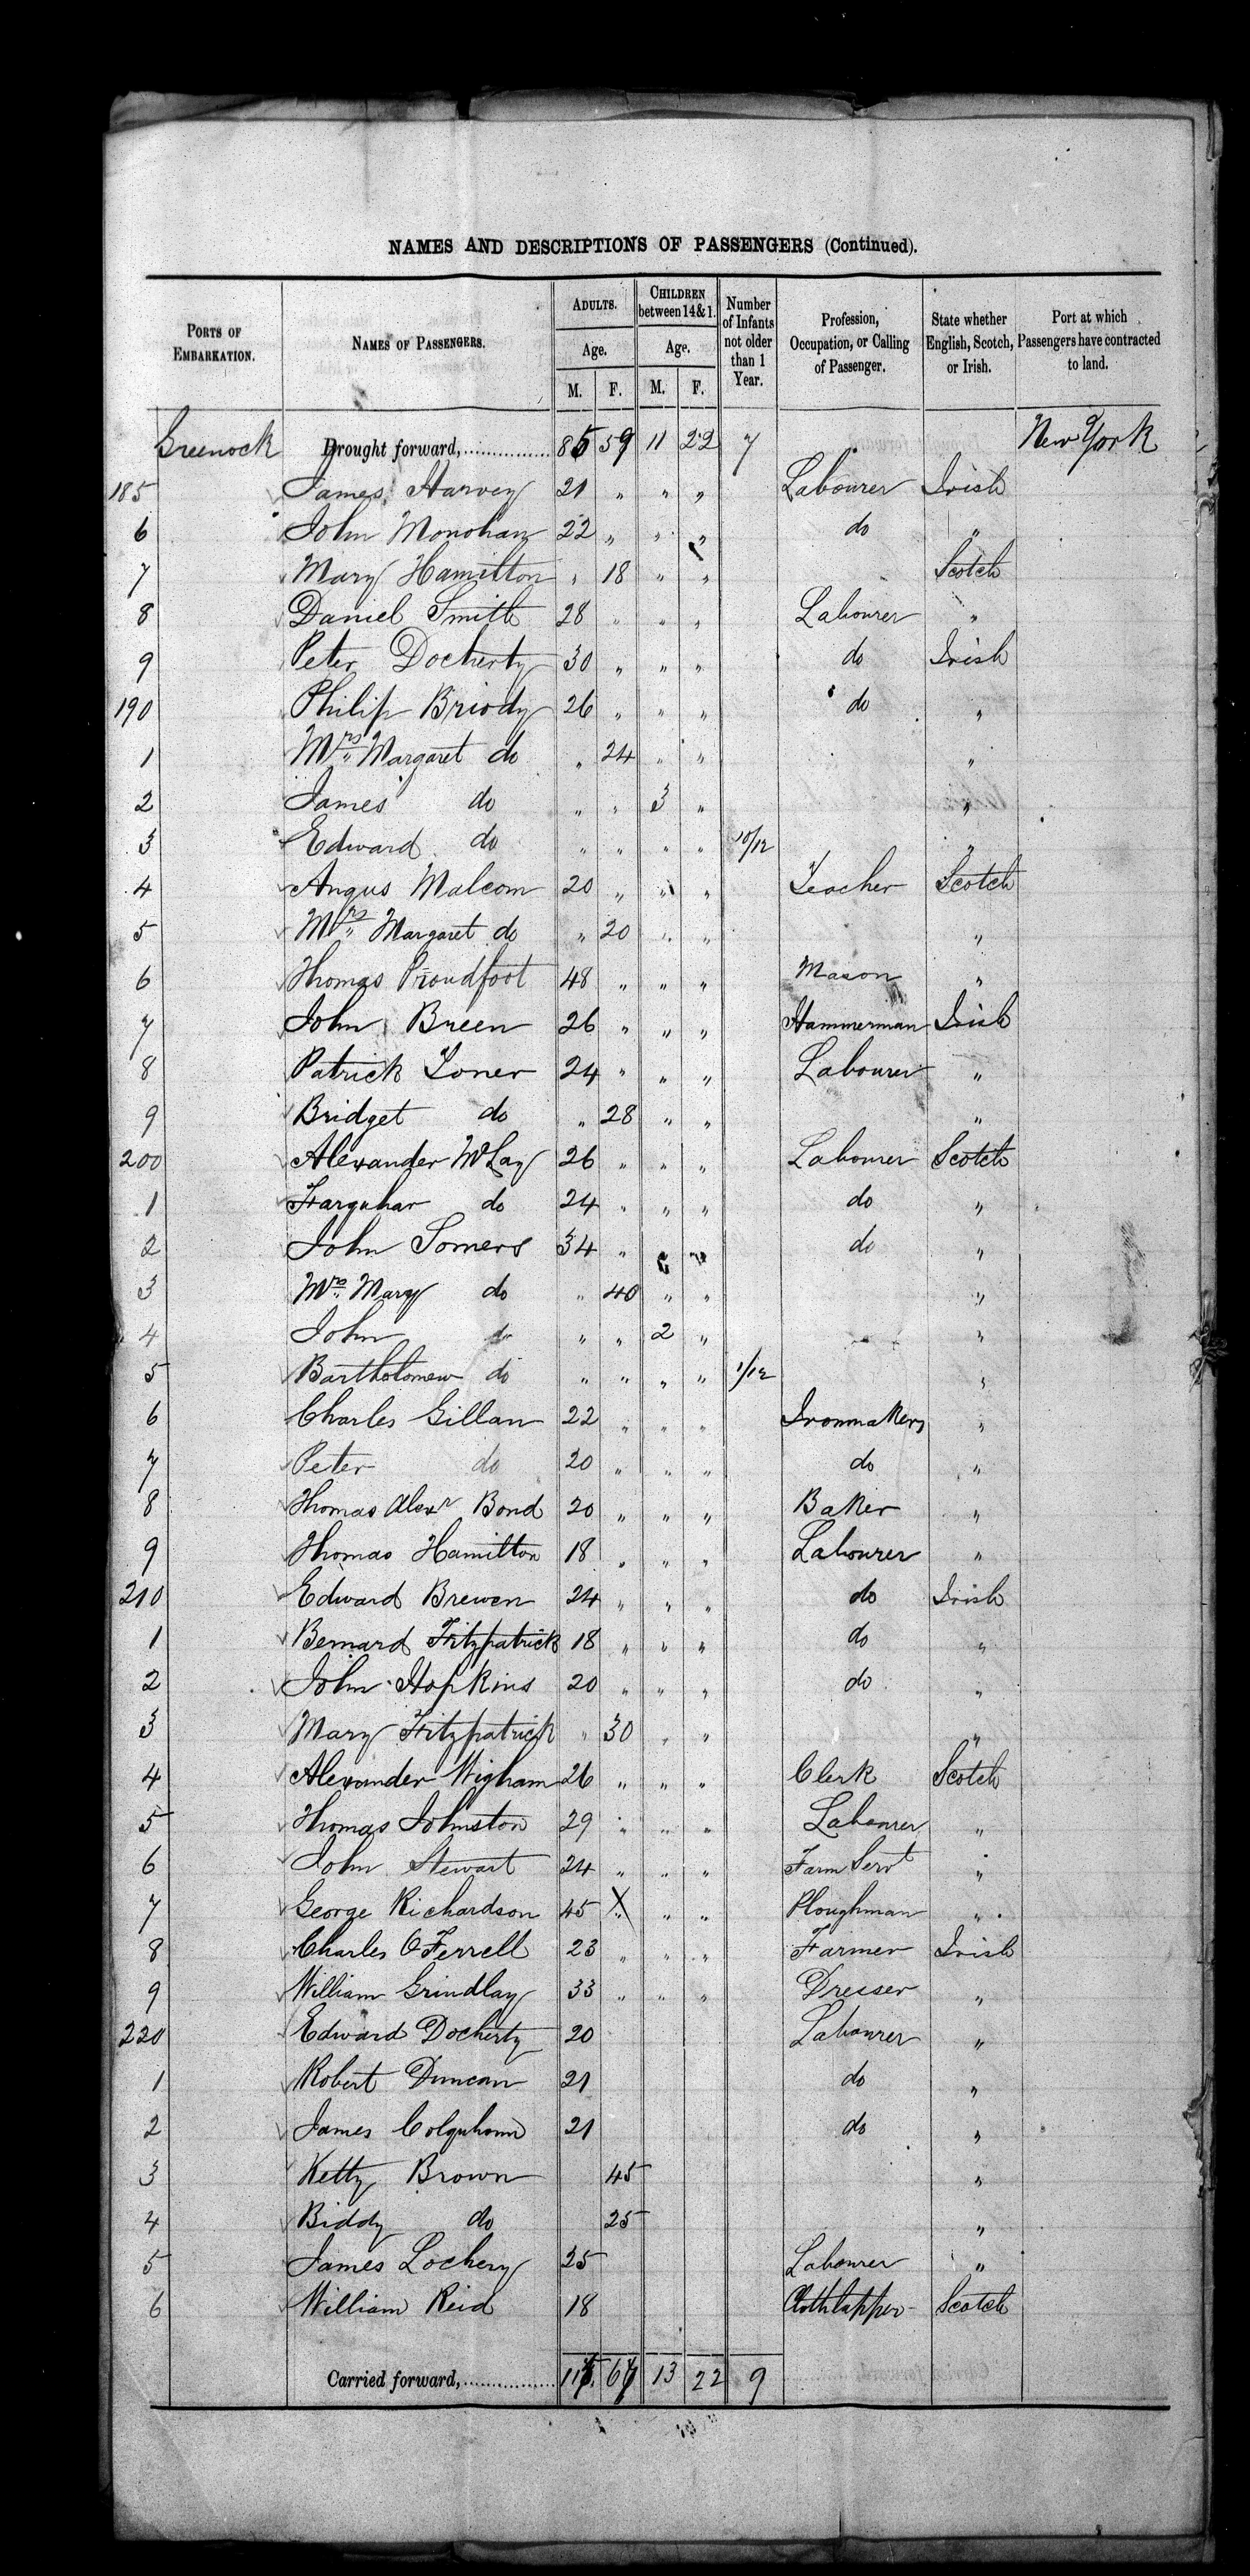 NAMES AND DESCRIPTIONS OF PASSENGERS (Continued).
PORTS OF EMBARKATION. NAMES OF PASSENGERS. ADULTS. Age. M. F. CHILDREN between 14 & 1. Age. M. F. Number of Infants not older than 1 Year. Profession, Occupation, or Calling of Passenger. State whether English, Scotch, or Irish. Port at which Passengers have contracted to land.
Greenock Brought forward, 85 59 11 22 7 New York
185 James Harvey 21 " " " Labourer Irish
6 John Monohan 22 " " " do "
7 Mary Hamilton " 18 " " Scotch
8 Daniel Smith 28 " " " Labourer "
9 Peter Docherty 30 " " " do Irish
190 Philip Briody 26 " " " do "
1 Mrs Margaret do " 24 " " "
2 James do " " 3 " "
3 Edward do " " " " 10/12 "
4 Angus Malcom 20 " " " Teacher Scotch
5 Mrs Margaret do " 20 " " "
6 Thomas Proudfoot 48 " " " Mason "
7 John Breen 26 " " " Hammerman Irish
8 Patrick Toner 24 " " " Labourer "
9 Bridget do " 28 " " "
200 Alexander McLay 26 " " " Labourer Scotch
1 Farquhar do 24 " " " do "
2 John Somers 34 " " " do "
3 Mrs Mary do " 40 " " "
4 John do " " 2 " "
5 Bartholomew do " " " " 1/12 "
6 Charles Gillan 22 " " " Ironmakers "
7 Peter do 20 " " " do "
8 Thomas Alexr Bond 20 " " " Baker "
9 Thomas Hamilton 18 " " " Labourer "
210 Edward Brewen 24 " " " do Irish
1 Bernard Fitzpatrick 18 " " " do "
2 John Hopkins 20 " " " do "
3 Mary Fitzpatrick " 30 " " "
4 Alexander Wigham 26 " " " Clerk Scotch
5 Thomas Johnston 29 " " " Labourer "
6 John Stewart 24 " " " Farm Servt "
7 George Richardson 45 X " " Ploughman "
8 Charles O'Ferrell 23 " " " Farmer Irish
9 William Grindlay 33 " " " Dresser "
220 Edward Docherty 20 Labourer "
1 Robert Duncan 21 do "
2 James Colquhoun 21 do "
3 Ketty Brown 45 "
4 Biddy do 25 "
5 James Lochery 25 Labourer "
6 William Reid 18 Clothlapper Scotch
Carried forward, 67 13 22 9